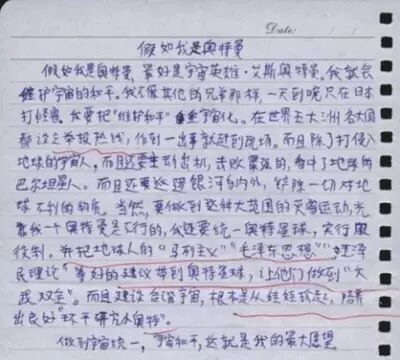 Date:
假如我是奥特曼
假如我是奥特曼，最好是宇宙英雄·艾斯奥特曼，我就会
维护宇宙的和平。我不像其他的兄弟那样，一天到晚只在日本
打怪兽。我要把“维护和平”宇宙化。在世界五大洲各大国
都设立举报热线，做到一出事就赶到现场。而且除了打侵入
地球的宇宙人，而且还要主动出机，击败最强的，看中了地球的
巴尔坦星人。而且还要巡逻银河系内外，铲除一切对地
球不利的物质。当然，要做到这种大范围的灾害运动，光
靠我一个奥特曼是不行的，我还要统一奥特星球，实行服
役制。并把地球人的“马列主义”“毛泽东思想”“
民理论”等好的建议带到奥特星球，让他们做到“
我双全”。而且建设合谐宇宙，根本是从娃娃抓起，培养
出良好“环干研究小奥特”。
做到宇宙统一，宇宙和平，这就是我的最大愿望